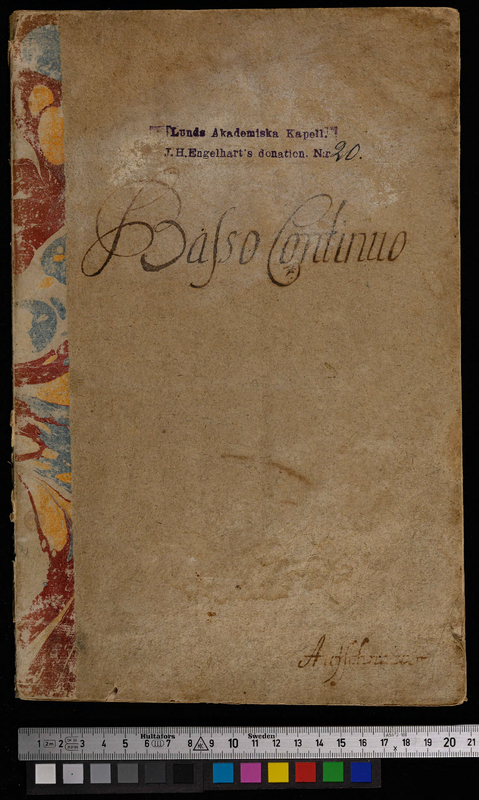 Lunds Akademiska Kapell.
J.H.Engelhart's donation. N:r 20.
Basso Continuo
Hultafors Sweden
1 2 3 4 5 6 7 8 9 10 11 12 13 14 15 16 17 18 19 20 21